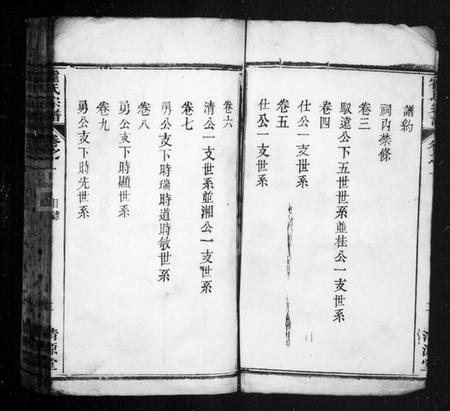 譜約
祠內禁條
卷三
馭遠公下五世世系並桂公一支世系
卷四
仕公一支世系
卷五
仕公一支世系
卷六
清公一支世系並湘公一支世系
卷七
勇公支下時瑞時道時敏世系
卷八
勇公支下時顯世系
卷九
勇公支下時先世系
氏宗譜
卷之一
目錄
清源堂